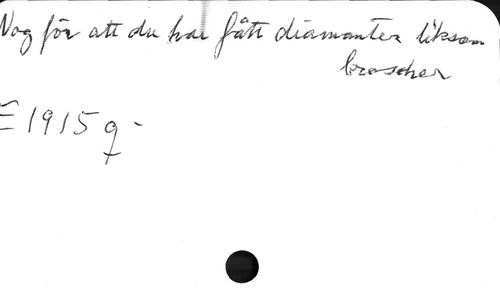 Nog för att du har fått diamanter liksom
broscher
E 1915 ♀ -